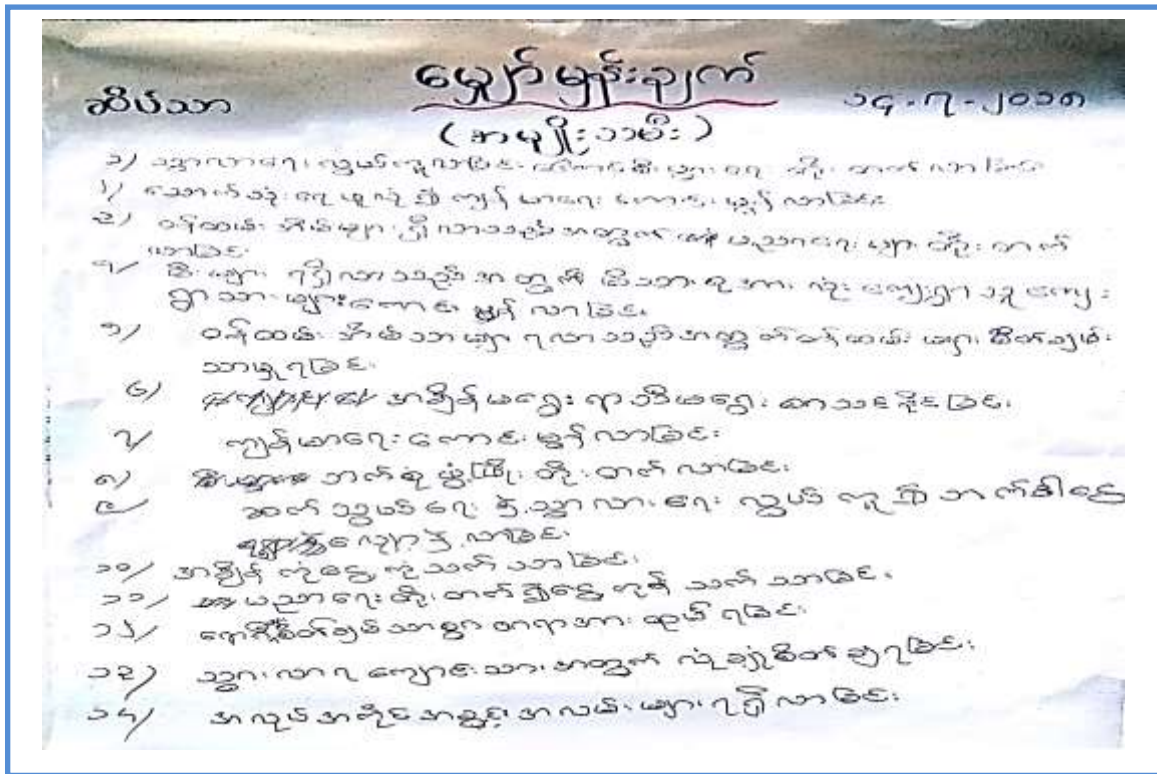 မျှော်မှန်းချက်
ဆိပ်သာ ၁၄-၇-၂၀၁၈
(အမျိုးသမီး)
၁/ သွားလာရေး လွယ်ကူလာခြင်း စီးပွားရေး တိုးတက်လာခြင်း
၂/ သောက်သုံးရေ ဖူလုံ၍ ကျန်းမာရေး ကောင်းမွန်လာခြင်း
၃/ ဝန်ထမ်းအိမ်များရှိလာသည့်အတွက် ပညာရေးများ တိုးတက်
လာခြင်း
၄/ မီးများ ရရှိလာသည့်အတွက် မိသားစုအား လုံး ကျေးရွာသူကျေး
ရွာသားများကောင်းမွန်လာခြင်း
၅/ ဝန်ထမ်းအိမ်သာများ ရလာသည့်အတွက်ဝန်ထမ်းများ စိတ်ချမ်း
သာမှုရခြင်း
၆/ အချိန်မရွေး ရာသီမရွေး စာသင်နိုင်ခြင်း
၇/ ကျန်းမာရေးကောင်းမွန်လာခြင်း
၈/ ဘက်စုံဖွံ့ဖြိုးတိုးတက်လာခြင်း
၉/ ဆက်သွယ်ရေးနှဲ့သွားလာရေး လွယ်ကူ၍ ဘက်
လျော့နဲလာခြင်း
၁၀/ အချိန်ကုံငွေကုံသက်သာခြင်း
၁၁/ ပညာရေးတိုးတက်၍ငွေကုန်သက်သာခြင်း
၁၂/ စိတ်ချမ်သာစွာ တရားအားထုတ်ရခြင်း
၁၃/ သွားလာရ ကျောင်းသားအတွက် လုံချုံစိတ်ချရခြင်း
၁၄/ အလုပ်အကိုင်အခွင့်အလမ်းများရရှိလာခြင်း